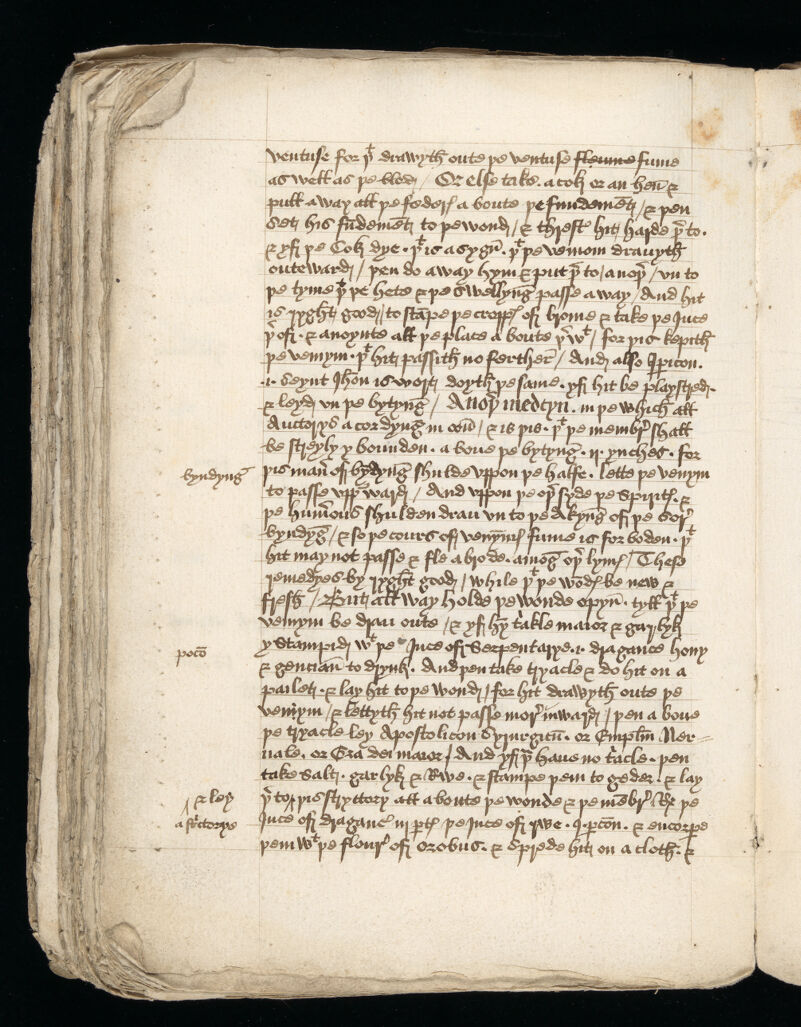 ventuse for þt drawyth oute þe ventuse fleume fume
as well as þe blod / Or else take a cok or an hen &
pull a way all þe feders a boute þe fundement / & þen
sett his fundement to þe wond / & threst hit harde þer to .
& yf þe Cok dye . þt is a sygn . þt þe venom drawyth
outeward / þen do a way hym & put þer to / anoþer / vn to
þe tyme þt þe hete & þe swellyng passe a way / And hit
is ryght good / to stampe þe cropps of brome & take þe Juce
þer of . & anoynte all þe place a boute þer wt / for þis kepith
þe venym . þt hit passith no ferther / And also Ipicon .
.i. seynt Jhon is wort doyth þe same . yf hit be playstred .
& leyd vn þe bytyng / Anoþer medcyn . in þe which all
Auctorys a cordyng in oon / & is þis . þt þe membr shall
be streyly y bounden . a boue þe bytyng . ii . ynches . for
byndyng
þis maner of byndyng shulde vppon þe halfe . lette þe venym
to passe vpp ward / And vppon þe oþer syde þe spirits &
þe humours shulden drau vn to þe akyng of þe sor
byndyg / & so þe cours of venyms fume is for boden . þt
hit may not passe & fle a brode . among oþer lyms / These
remedyes by ryght good / while þt þe wonds be new &
fresh / But all way holde þe wonde opyn . tyll þt þe
venym be drau oute / & yf hym triakle maior & garlyk
y stampid wt þe Juce of Serpentarye .i. dragance hony
pocon
& gencian to drynk . And þen take tryacle & do hit on a
parlet . & lay hit to þe wond / for hit drawyth oute þe
venym / & lettyth hit not passe mor inward / þen a boue
þe tryacle ley Apostolicon Syrurgicum . or Emplm Ner-
uale . or Gra dei maior / And yf þou haue no triacle . þen
take salt . garlyk & Rwe . & stampe þem to geder . & lay
& ley
þer to / þis stryttory all a boute þe wonde & þe membr / Take þe
a strictorye
Juce of draganc iij partes þe Juce of rwe . J . porcon . & encorpe
þem wt þe flour of orobus . & sprede hit on a cloth . &